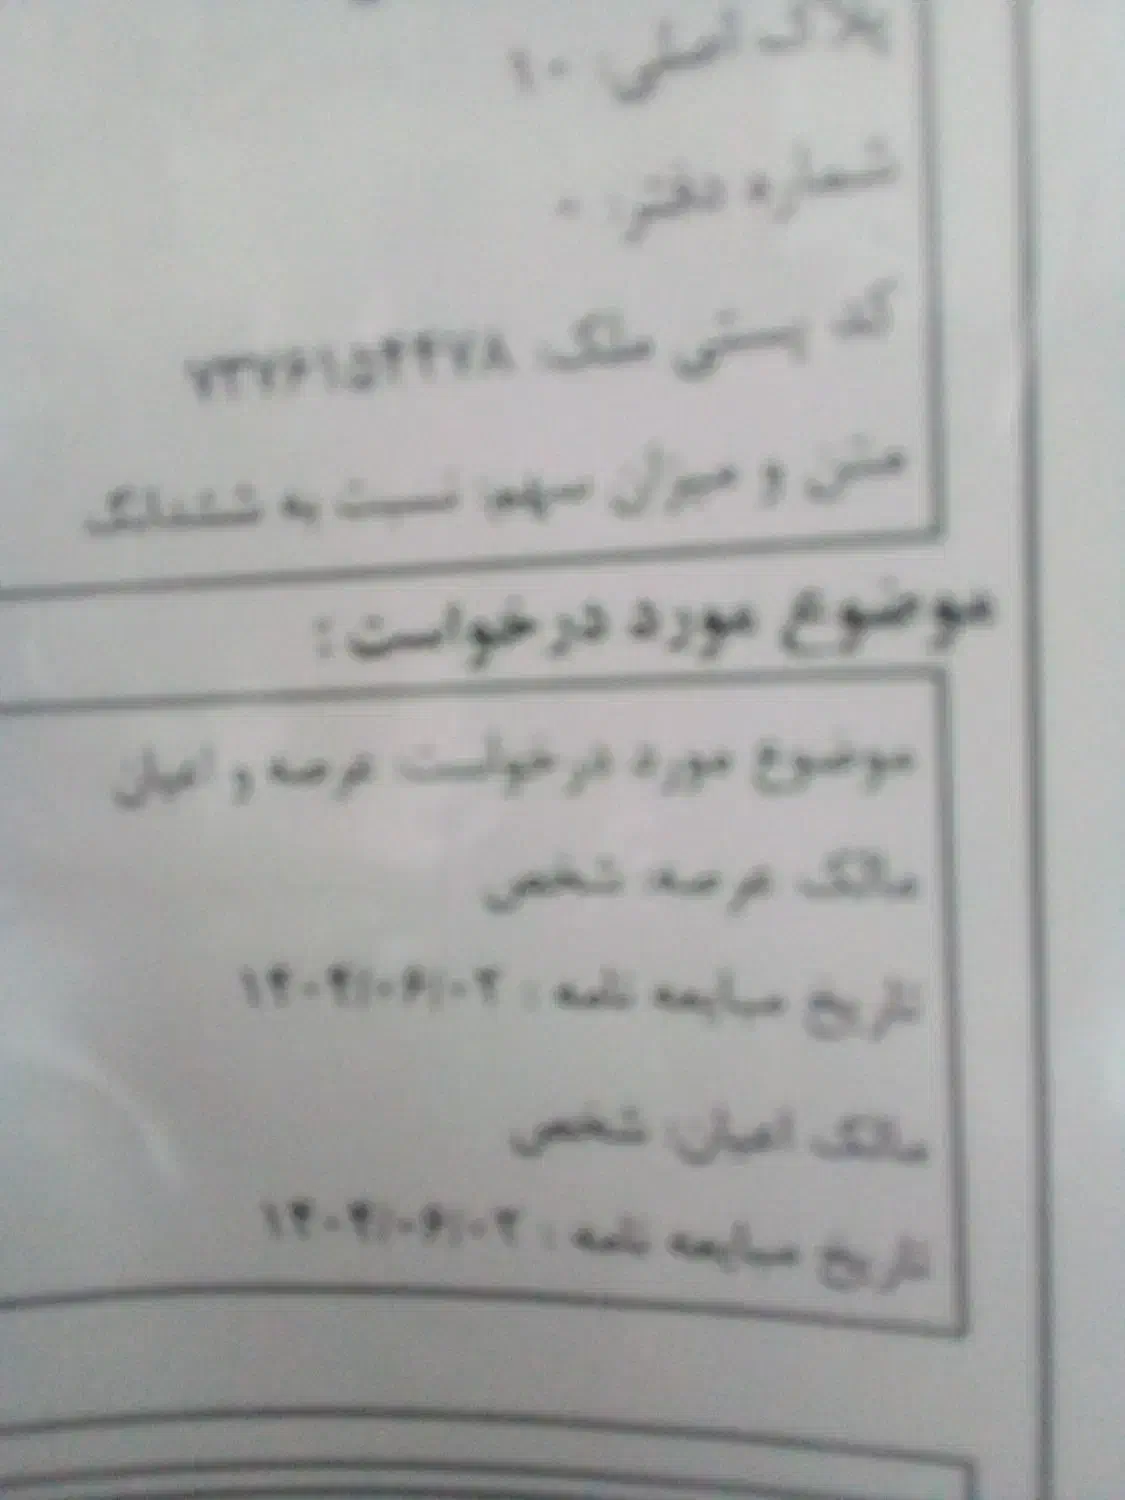 پلاک اصلی: ۱۰
شماره دفتر: ۰
کد پستی ملک:
متن و میزان سهم: نسبت به ششدانگ
موضوع مورد درخواست:
موضوع مورد درخواست: عرصه و اعیان
مالک عرصه: شخص
تاریخ مبایعه نامه :
مالک اعیان: شخص
تاریخ مبایعه نامه :